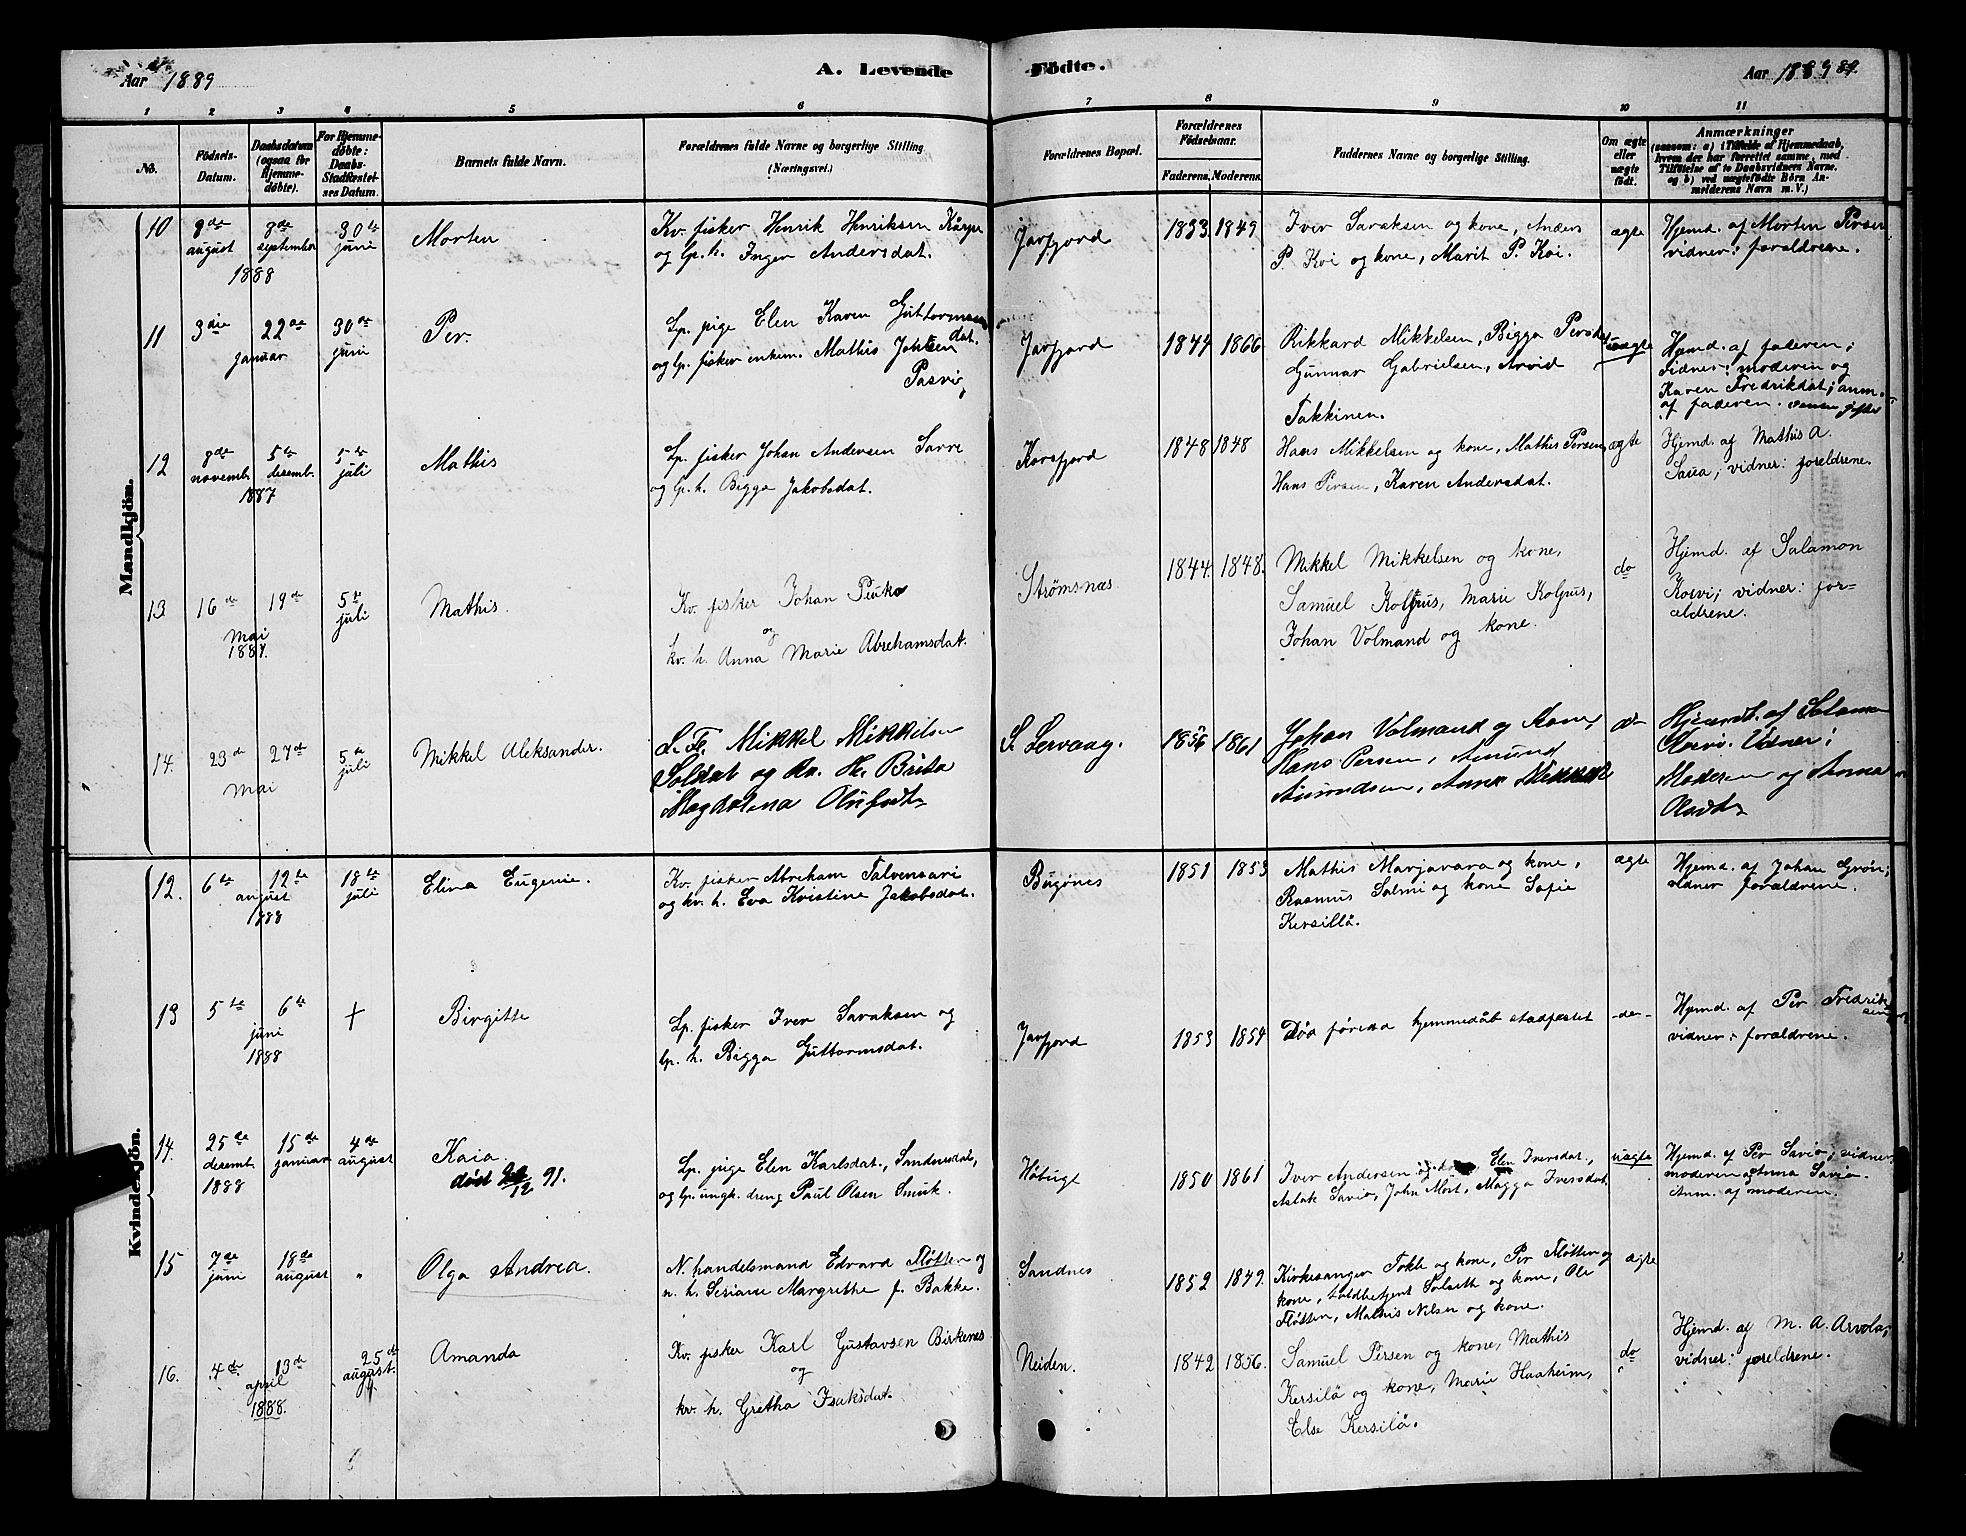 Aar 1889
A. Levende
Födte.
Aar 1889 89.
1 2 3 4 5 6 7 8 9 10 11
No.
Födsels-
Datum.
Daabsdatum
(ogsaa for
Hjemme-
döbte).
For Hjemme-
döbte:
Daabs-
Stadfæstel-
ses Datum.
Barnets fulde Navn.
Forældrenes fulde Navne og borgerlige Stilling
(Næringsvei.)
Forældrenes Bopæl.
Forældrenes
Födselsaar.
Faderens. Moderens.
Faddernes Navne og borgerlige Stilling.
Om ægte
eller
uægte
födt.
Anmærkninger
(saasom: a) i Tilfælde af Hjemmedaab,
hvem der har forrettet samme, med
Tilföielse af to Daabsvidners Navne,
og b) ved uægtefödte Börn An-
melderens Navn m. V.)
Mandkjön.
10
8de
august
8de
september
1888
30te
juni
Morten
Kv. fisker Henrik Henriksen
og lp. h. Inger Andersdat.
Jarfjord
1833. 1849.
Iver Saraksen og kone, Anders
P. Koi og kone, Marit P. Koi.
ægte
Hjemd. af Morten Persen
vidner: forældrene.
11
3die
22de
januar
30te
juni
Per.
Lp. pige Elen Karen Guttormsen
dat.
og lp. fisker enkem. Mathis Johnsen
Pasvig
Jarfjord
1844 1866
Rikkard Mikkelsen, Bigga Persdat
Gunnar Gabrielsen, Arvid
Takkinen.
uægte
Hjemd. af faderen;
vidner: moderen og
Karen Fredrikdat; anm.
af faderen.
12
8de
novemb.
5te
desemb.
1887
5te
juli
Mathis
Lp. fisker Johan Andersen Sarre
og lp. h. Bigga Jakobsdat.
Korsfjord
1848 1848
Hans Mikkelsen og kone, Mathis Persen,
Hans Persen, Karen Andersdat.
ægte
Hjemd. af Mathis A.
Saua; vidner: foreldrene.
13
16de
19de
mai
1887.
5te
juli
Mathis.
Kv. fisker Johan Piuko
og
kv. h. Anna Marie Abrehamsdat.
Strømsnæs.
1844. 1848.
Mikkel Mikkelsen og kone,
Samuel Kolpus, Marie Kolpus,
Johan Volmand og kone.
do
Hjemd. af Salamon
Korvi; vidner: for-
ældrene.
14.
23de
27de
mai
5te
juli
Mikkel Aleksander.
L. F. Mikkel Mikkelsen
Soldat og Kv. H. Brita
Magdalena Olufsdtr
S. Servang.
1856 1861
Johan Volmand og Kone,
Hans Persen, Amund
Amundsen, Anna
do
Hjemdt. af Salamon
Korvi. Vidner:
Moderen og Anna
Olavdtr
Kvindekjön.
12.
6te
12te
august
1888
18te
juli
Elina Eugenie.
Kv. fisker Abreham Talvensari
og kv. h. Eva Kristine Jakobsdat.
Bugønes
1851 1853
Mathis Marjavara og kone,
Rasmus Salmi og kone Sofie
Kersillä.
ægte
Hjemd. af Johan Grøn;
vidner forældrene.
13
5te
6te
juni
1888
+
Birgitte
Lp. fisker Iver Saraksen og
lp. h. Bigga Guttormsdat.
Jarfjord
1853 1854
Død førend hjemmedåb stadfæstet
-do-
Hjemd. af Per Fredrik
sen
vidner: forældrene.
14.
25de
desemb.
1888
15de
januar
4de
august
Kaia.
død 20/12 91.
Lp. pige Elen Karlsdat., Sandnesdal,
og lp. ungk. dreng Paul Olsen Smuk.
Høbugt
1850 1861
Iver Andersen og Elen Iversdat.,
Aslak Savio, John Mort, Magga Iversdat.
uægte
Hjemd. af Per Savio; vidner
moderen og Anna Savio.
Anm. af moderen.
15
7de
juni
18de
august
"
Olga Andrea.
N. handelsmand Edvard Fløtten og
n. h. Sesianne Margrethe f. Bakke.
Sandnes
1852 1849.
Kirkesanger Tokle og kone, Per Fløtten og
kone, toldbetjent Solseth og kone, Ole
Fløtten, Mathis Nilsen og kone.
ægte
16.
4de
13de
april
1888.
25de
august.
Amanda
Kv. fisker Karl Gustavsen Birkenes
og
kv. h. Gretha Isaksdat.
Neiden.
1842 1856.
Samuel Persen og kone, Mathis
Kersilä og kone, Marie Haaheim,
Else Kersilä.
do
Hjemd. af M. A. Arvola;
vidner: foreldrene.